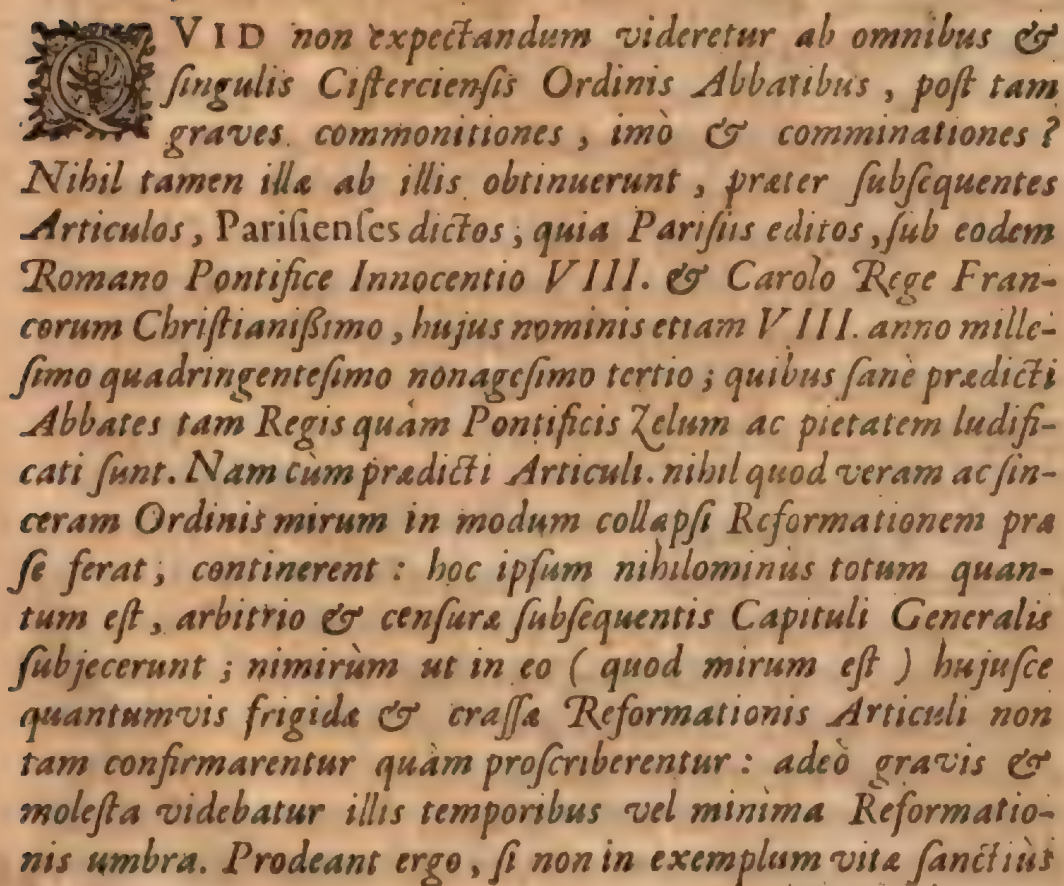 QVID non expectandum videretur ab omnibus &
ſingulis Ciſtercienſis Ordinis Abbatibus, poſt tam
graves commonitiones, imò & comminationes?
Nihil tamen illæ ab illis obtinuerunt, præter ſubſequentes
Articulos, Pariſienſes dictos; quia Pariſiis editos, ſub eodem
Romano Pontifice Innocentio VIII. & Carolo Rege Fran-
corum Chriſtianißimo, hujus nominis etiam VIII. anno mille-
ſimo quadringenteſimo nonageſimo tertio; quibus ſanè prædicti
Abbates tam Regis quàm Pontificis Zelum ac pietatem ludifi-
cati ſunt. Nam cùm prædicti Articuli. nihil quod veram ac ſin-
ceram Ordinis mirum in modum collapſi Reformationem præ
ſe ferat, continerent: hoc ipſum nihilominùs totum quan-
tum eſt, arbitrio & cenſuræ ſubſequentis Capituli Generalis
ſubjecerunt; nimirùm ut in eo ( quod mirum eſt ) hujuſce
quantumvis frigidæ & craſſæ Reformationis Articuli non
tam confirmarentur quàm proſcriberentur: adeò gravis &
moleſta videbatur illis temporibus vel minima Reformatio-
nis umbra. Prodeant ergo, ſi non in exemplum vitæ ſanctiùs